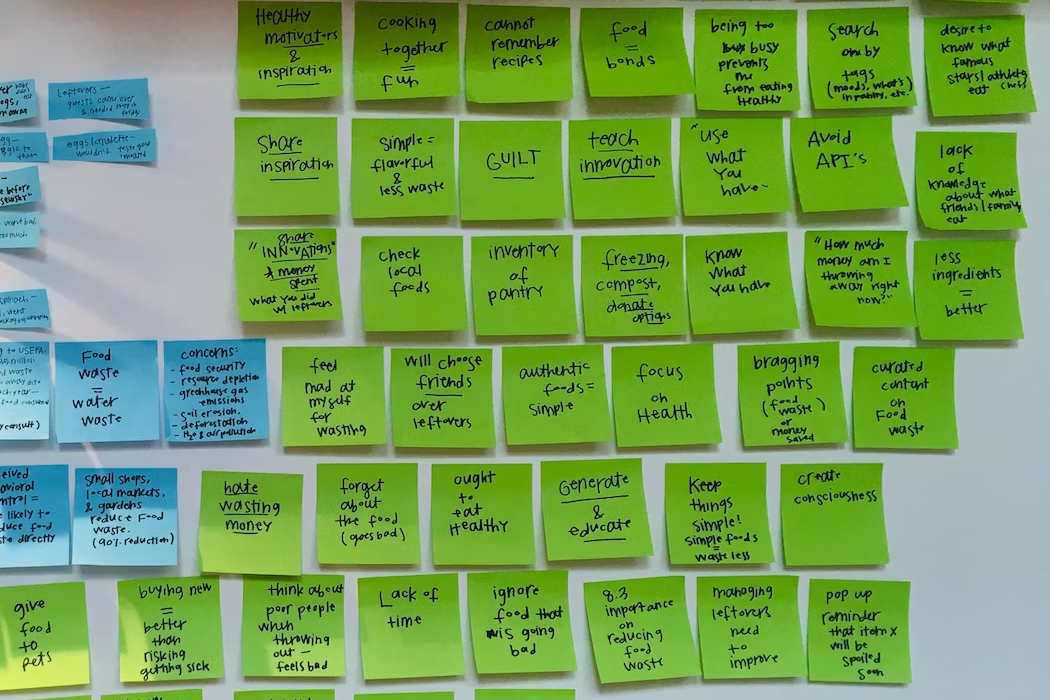 Healthy
motivators
&
inspiration
cooking
together
=
fun
cannot
remember
recipes
food
=
bonds
being too
busy
prevents
me
from eating
Healthy
Search
by
tags
(moods, what's
in pantry, etc.)
desire to
know what
famous
stars/athletes
eat (chefs
Leftovers –
guests
eggs/omelette –
wouldn't
Share
inspiration
simple =
flavorful
&
less waste
GUILT
teach
innovation
"use
what
you
have~
Avoid
API's
lack
of
knowledge
about what
friends/family
eat
"share
INNOVATIONS"
& money
spent
what you did
w/ leftovers
check
local
foods
inventory
of
pantry
freezing,
compost,
donate
options
know
what
you have
"How much
money am I
throwing
away right
now?"
less
ingredients
=
better
Food
waste
=
water
waste
concerns:
- food security
- resource depletion
- greenhouse gas
emissions
- soil erosion
- deforestation
- H2O & air pollution
feel
mad at
myself
for
wasting
will choose
friends
over
leftovers
authentic
foods=
simple
focus
on
Health
bragging
points
(food
waste)
or
money
saved
curated
content
on
Food
waste
small shops,
local markets,
& gardens
reduce Food
waste.
(90% reduction)
hate
wasting
money
forget
about
the food
(goes bad)
ought
to
eat
Healthy
Generate
&
educate
Keep
things
simple!
simple foods
=
waste less
create
consciousness
give
food
to
pets
buying new
=
better
than
risking
getting sick
think about
poor people
when
throwing
out –
feels bad
Lack of
time
ignore
food that
is going
bad
8.3
importance
on
reducing
food
waste
managing
leftovers
need
to
improve
pop up
reminder
that item x
will be
spoiled
soon